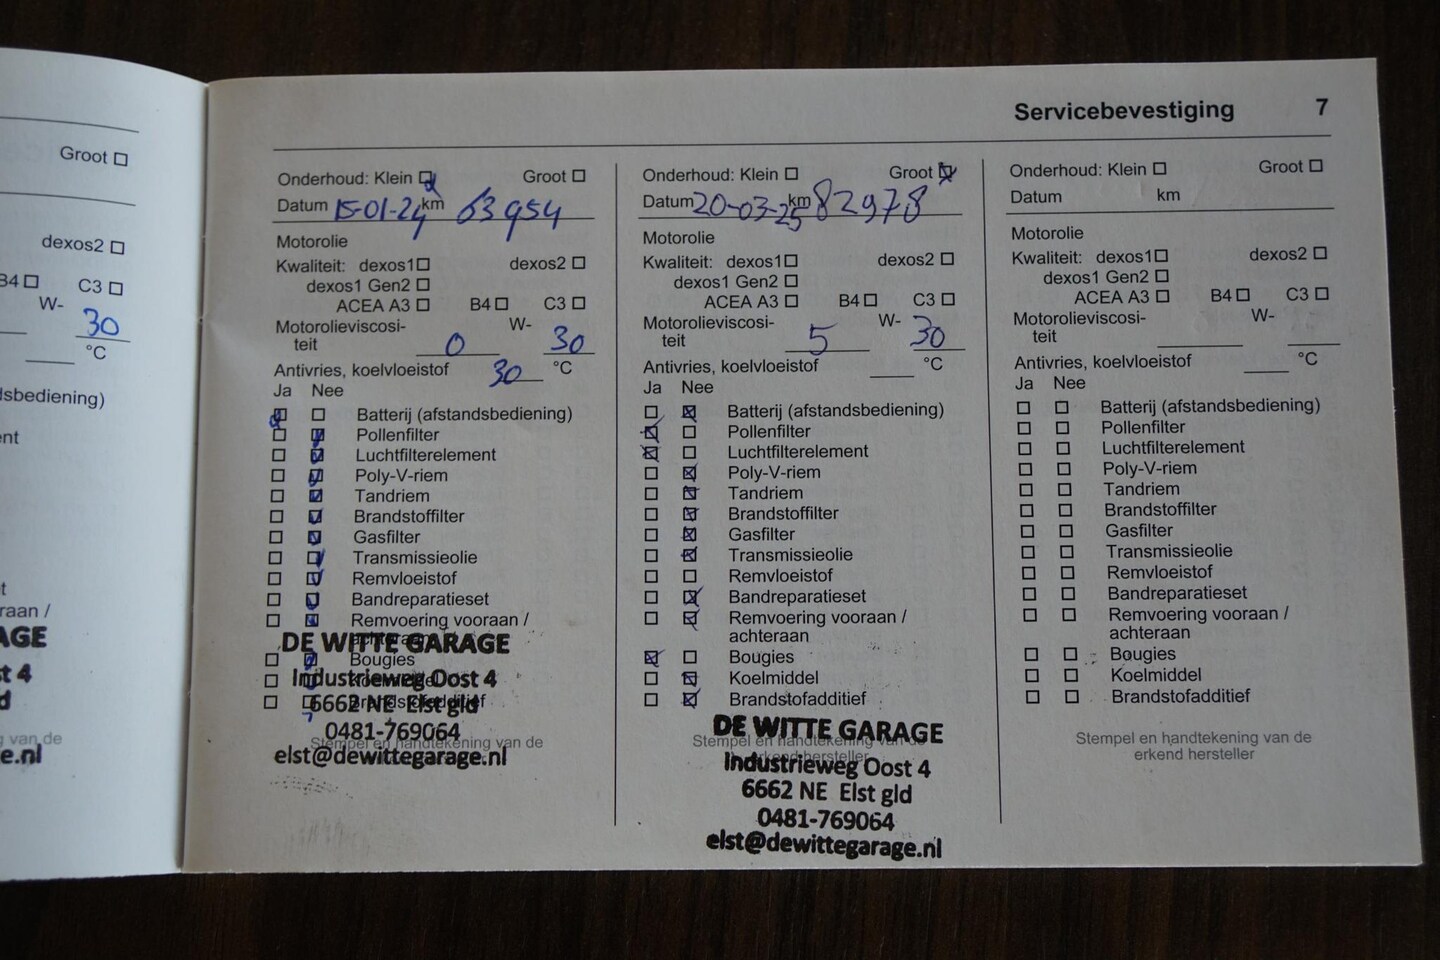 Groot
dexos2
B4 C3
W-
30
°C
sbediening)
nt
t
raan /
AGE
t 4
d
van de
e.nl
Servicebevestiging 7
Onderhoud: Klein Groot
Datum 15-01-24 km 63954
Motorolie
Kwaliteit: dexos1 dexos2
dexos1 Gen2
ACEA A3 B4 C3
Motorolieviscosi-
teit 0 W- 30
Antivries, koelvloeistof 30 °C
Ja Nee
Batterij (afstandsbediening)
Pollenfilter
Luchtfilterelement
Poly-V-riem
Tandriem
Brandstoffilter
Gasfilter
Transmissieolie
Remvloeistof
Bandreparatieset
Remvoering vooraan /
achteraan
Bougies
Koelmiddel
Brandstofadditief
DE WITTE GARAGE
Industrieweg Oost 4
6662 NE Elst gld
0481-769064
Stempel en handtekening van de
elst@dewittegarage.nl
Onderhoud: Klein Groot
Datum 20-03-25 km 82978
Motorolie
Kwaliteit: dexos1 dexos2
dexos1 Gen2
ACEA A3 B4 C3
Motorolieviscosi-
teit 5 W- 30
Antivries, koelvloeistof °C
Ja Nee
Batterij (afstandsbediening)
Pollenfilter
Luchtfilterelement
Poly-V-riem
Tandriem
Brandstoffilter
Gasfilter
Transmissieolie
Remvloeistof
Bandreparatieset
Remvoering vooraan /
achteraan
Bougies
Koelmiddel
Brandstofadditief
DE WITTE GARAGE
Stempel en handtekening van de
erkend hersteller
Industrieweg Oost 4
6662 NE Elst gld
0481-769064
elst@dewittegarage.nl
Onderhoud: Klein Groot
Datum km
Motorolie
Kwaliteit: dexos1 dexos2
dexos1 Gen2
ACEA A3 B4 C3
Motorolieviscosi-
teit W-
Antivries, koelvloeistof °C
Ja Nee
Batterij (afstandsbediening)
Pollenfilter
Luchtfilterelement
Poly-V-riem
Tandriem
Brandstoffilter
Gasfilter
Transmissieolie
Remvloeistof
Bandreparatieset
Remvoering vooraan /
achteraan
Bougies
Koelmiddel
Brandstofadditief
Stempel en handtekening van de
erkend hersteller